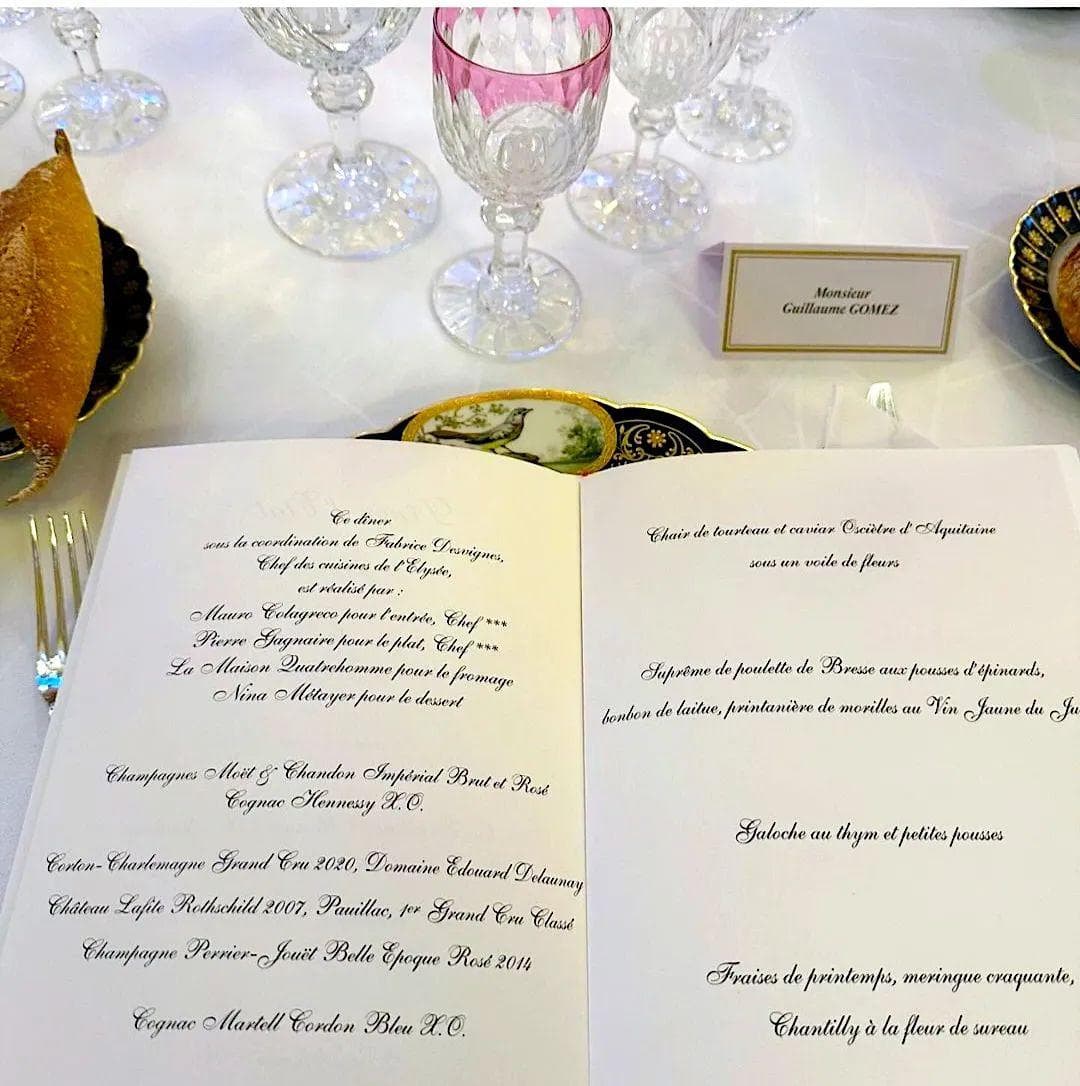 Monsieur
Guillaume GOMEZ
Ce dîner
sous la coordination de Fabrice Desvignes,
Chef des cuisines de l'Elysée,
est réalisé par :
Mauro Colagreco pour l'entrée, Chef ***
Pierre Gagnaire pour le plat, Chef ***
La Maison Quatrehomme pour le fromage
Nina Métayer pour le dessert
Champagnes Moët & Chandon Impérial Brut et Rosé
Cognac Hennessy X.O.
Corton-Charlemagne Grand Cru 2020, Domaine Edouard Delaunay
Château Lafite Rothschild 2007, Pauillac, 1er Grand Cru Classé
Champagne Perrier-Jouët Belle Epoque Rosé 2014
Cognac Martell Cordon Bleu X.O.
Chair de tourteau et caviar Osciètre d'Aquitaine
sous un voile de fleurs
Suprême de poulette de Bresse aux pousses d'épinards,
bonbon de laitue, printanière de morilles au Vin Jaune du Ju
Galoche au thym et petites pousses
Fraises de printemps, meringue craquante,
Chantilly à la fleur de sureau